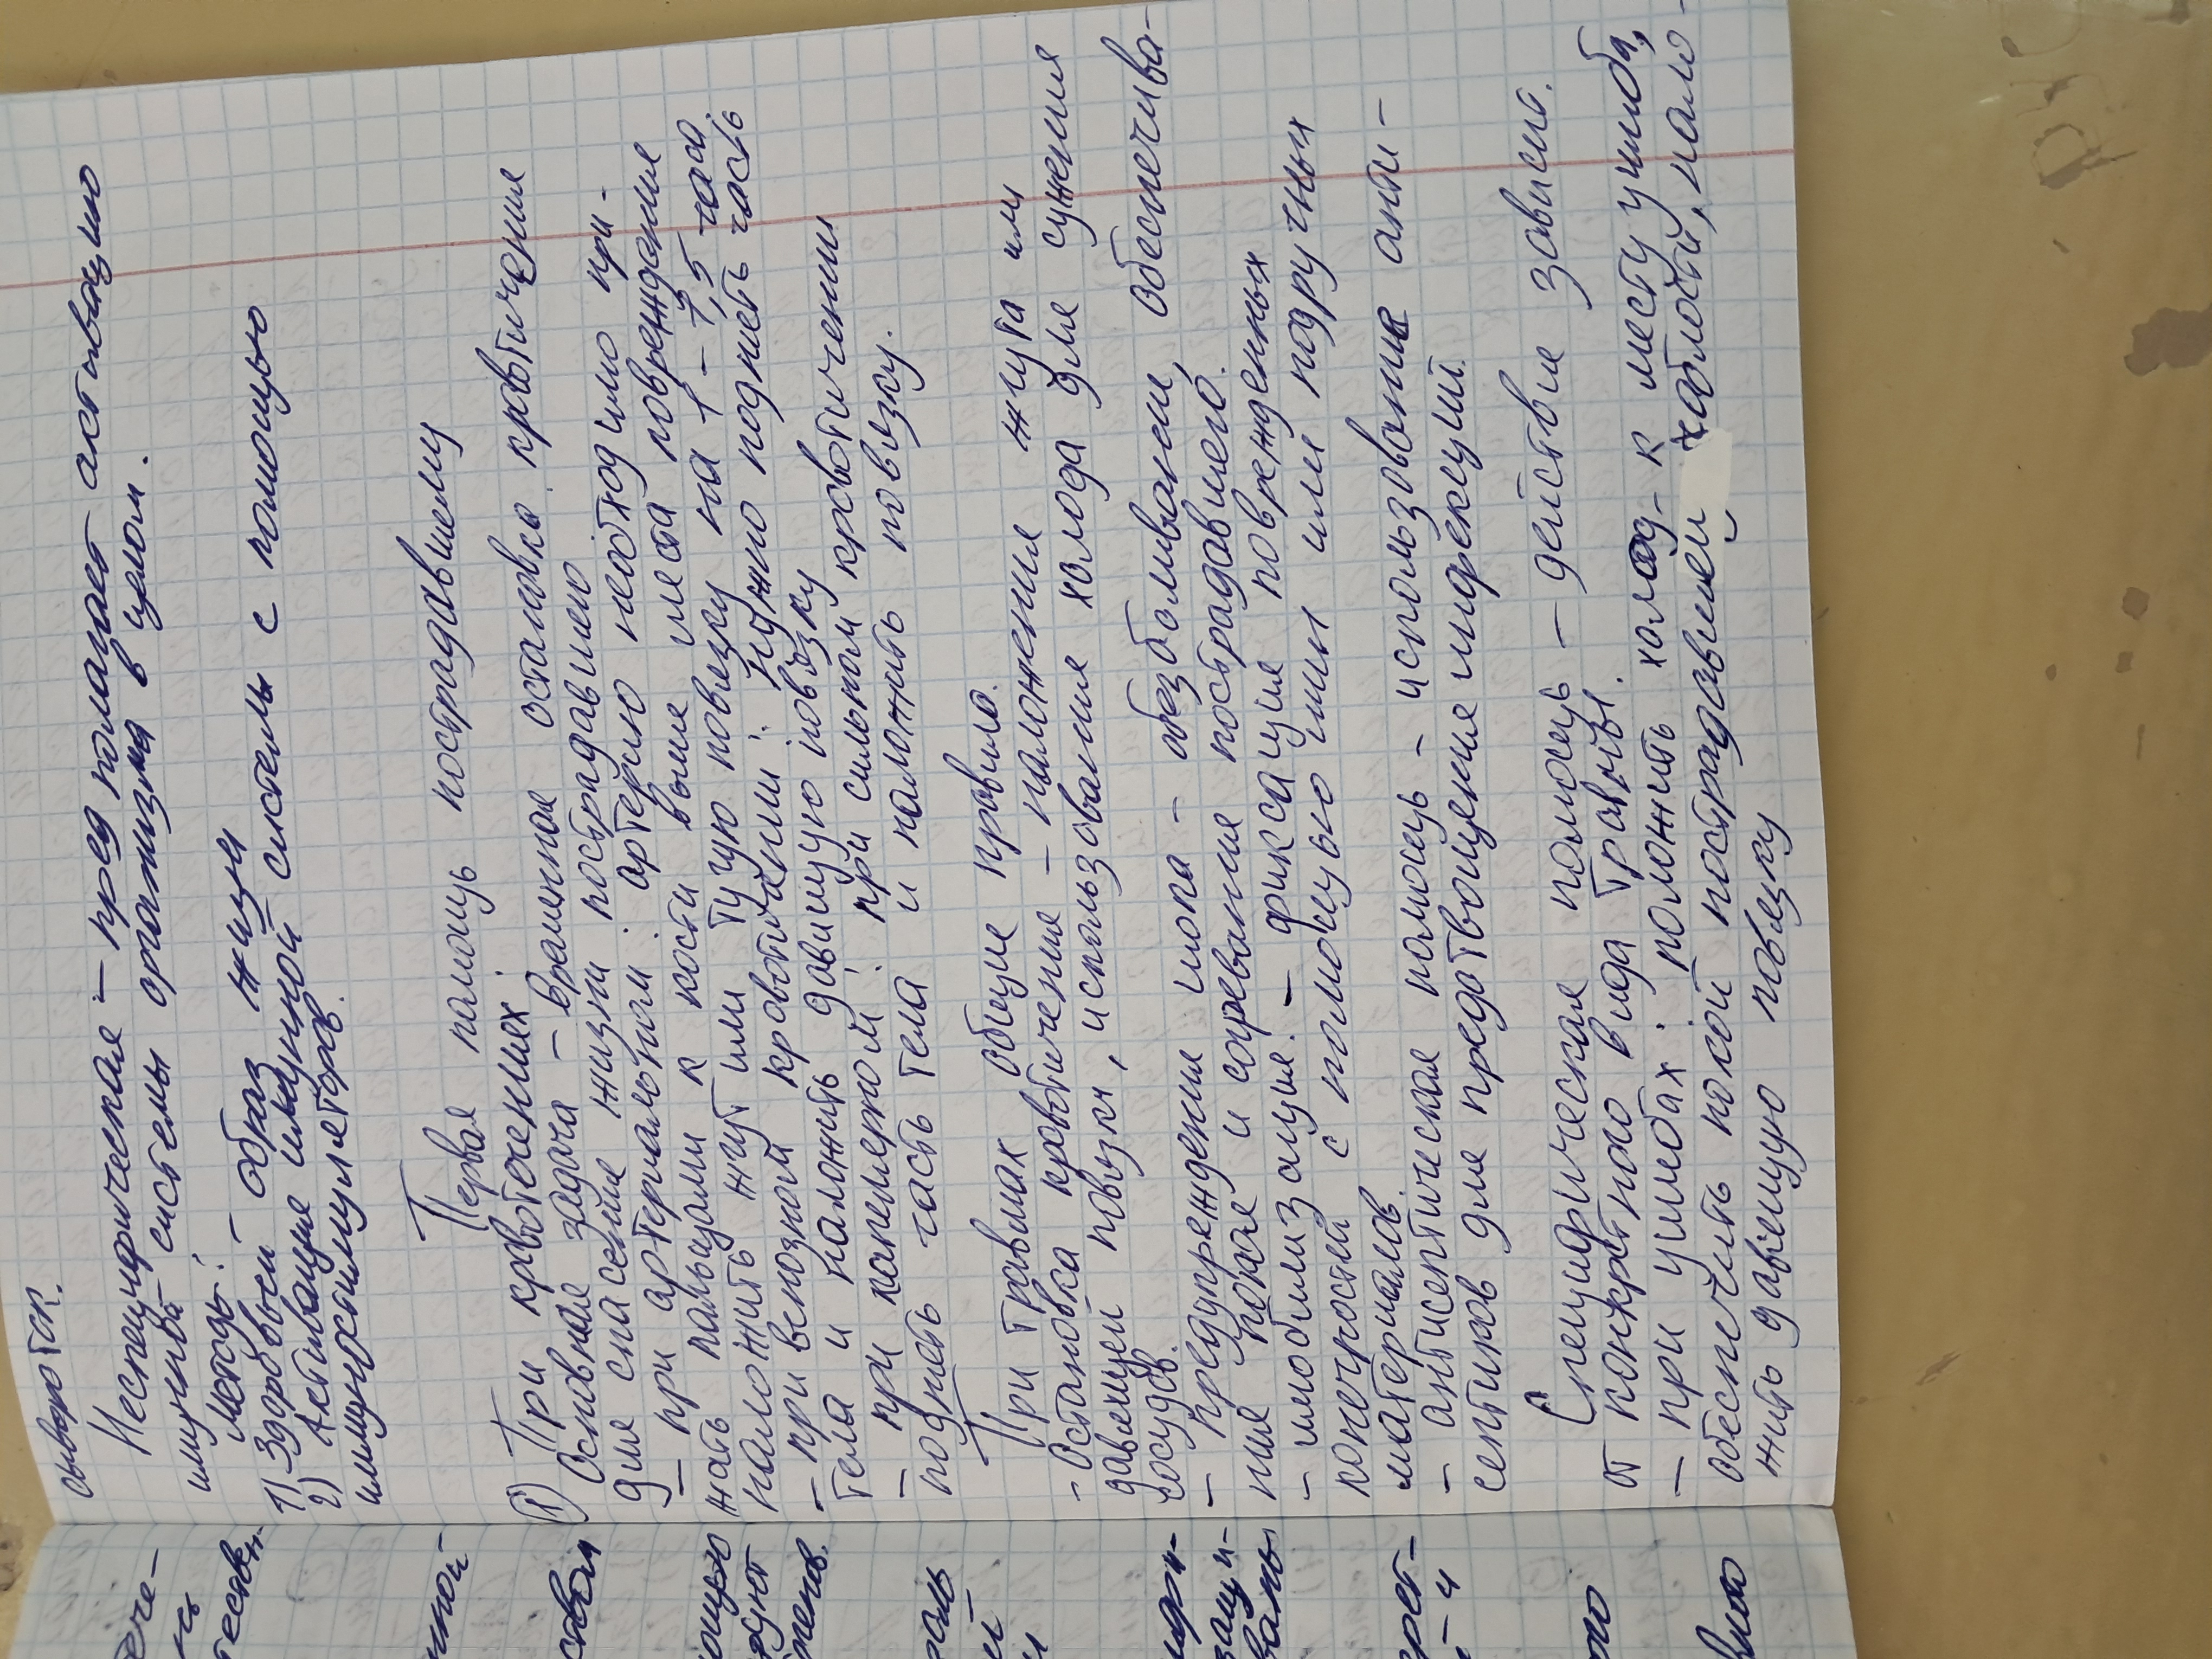 сывороток.
Неспецифическая – предполагает активацию
имунной системы организма в целом.
Методы:
1) Здоровый образ жизни
2) Активация имунной системы с помощью
имуностимуляторов.
Первая помощь пострадавшему
1) При кровотечениях:
Основная задача – временная остановка кровотечения
для спасения жизни пострадавшего
– при артериальном: артерию необходимо при-
жать пальцами к кости выше места повреждения
наложить жгут или тугую повязку на 1 – 1,5 часа.
– при венозном кровотечании: нужно поднять часть
тела и наложить давящую повязку
– при капилярном: при сильном кровотичении
поднять часть тела и наложить повязку.
При травмах общие правила.
– Остановка кровотичения – наложения жгута или
давящей повязки, использования холода для сужения
сосудов.
– предупреждении шока – обезболивании, обеспечива-
ния покоя и согревания пострадавшего.
– имобилизация. – фиксация поврежденных
конечностей с помощью шин или подручных
материалов.
– антисептическая помощь – использование анти-
септиков для предотвощения инфекций.
Специфическая помощь – действия зависит.
от конкретного вида травмы.
– при ушибах: положить холод – к месту ушиба,
обеспечить покой пострадавшей области, нало-
жить давящую повязку
ной
ством